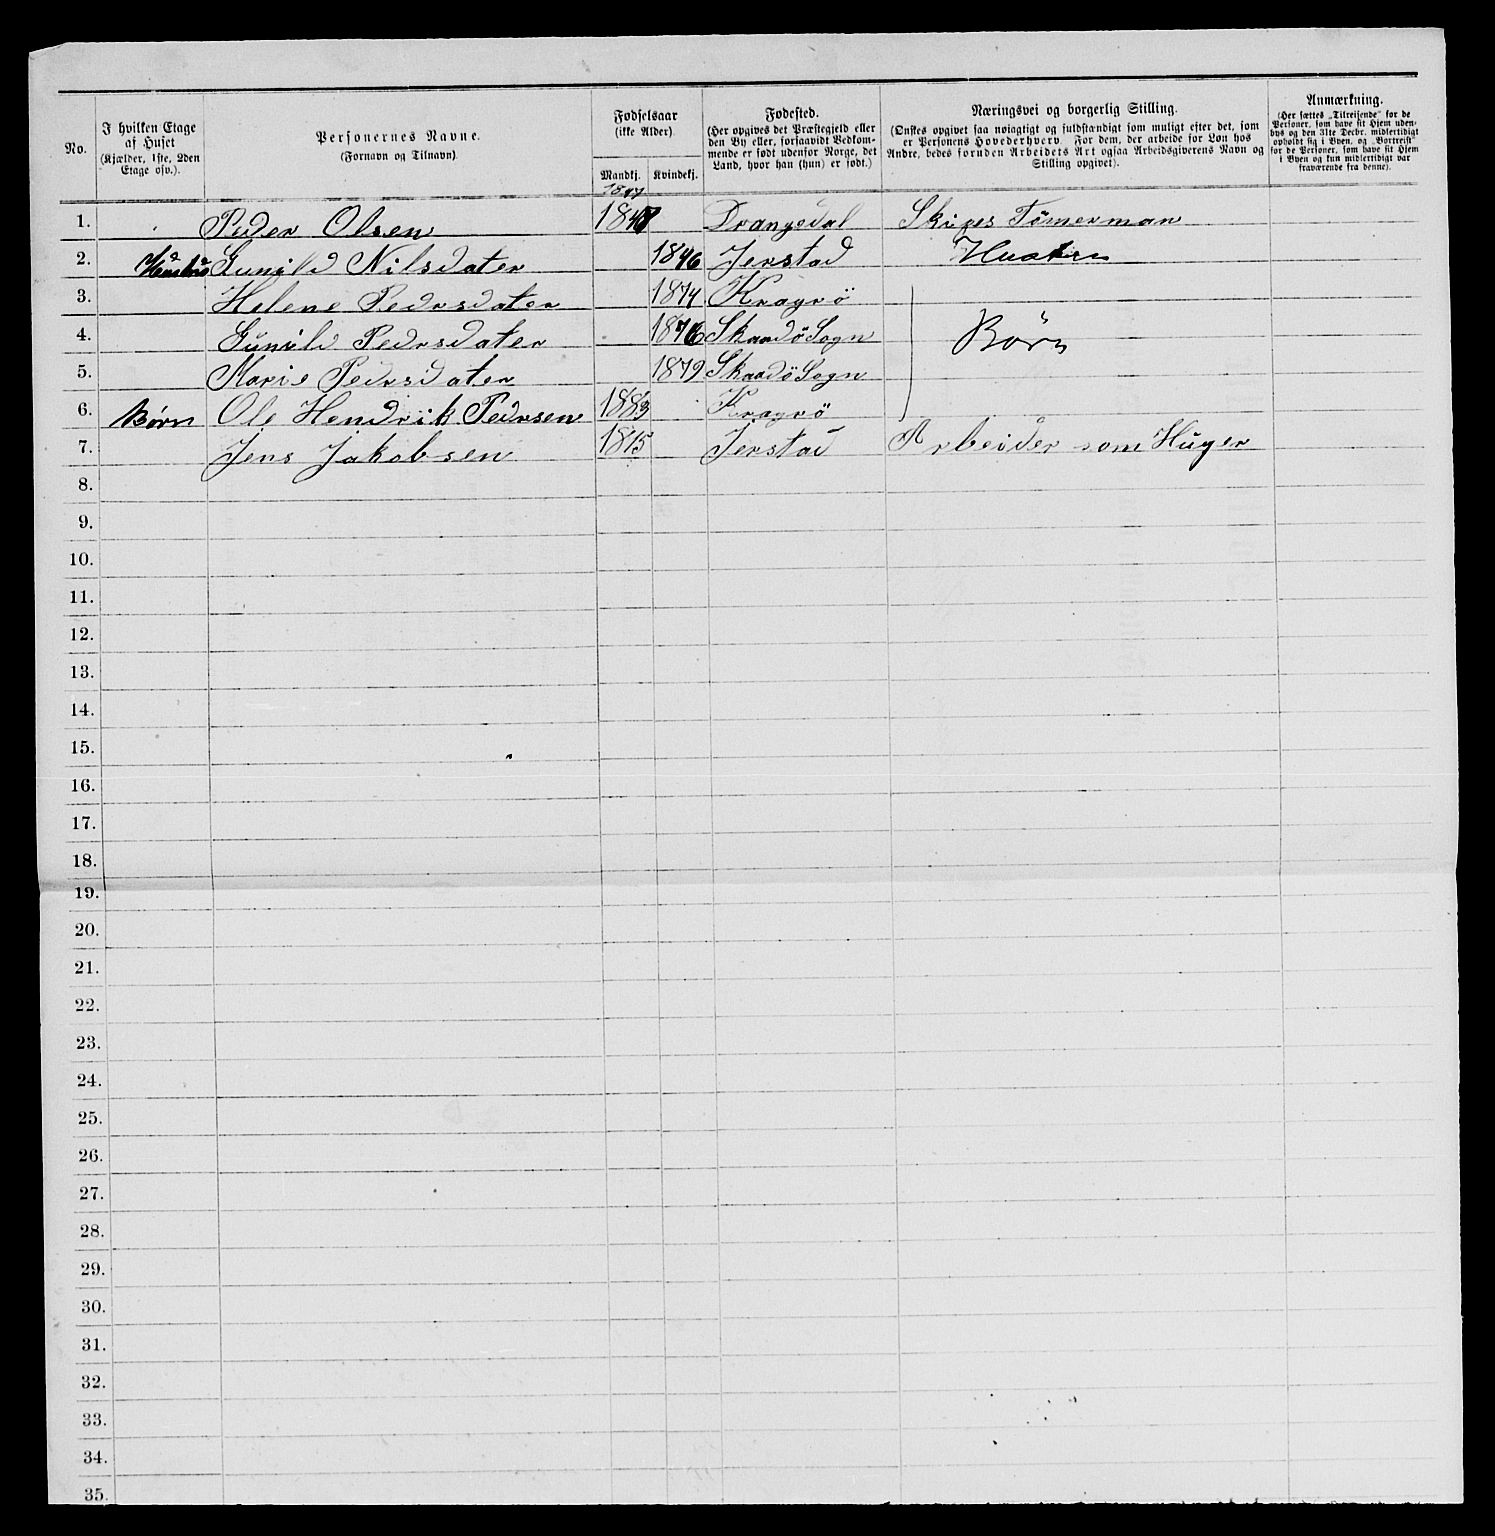 No.
I hvilken Etage
af Huset
(Kjælder, 1ste, 2den
Etage osv.).
Personernes Navne.
(Fornavn og Tilnavn)
Fødselsaar
(ikke Alder)
Mandkj.
Kvindekj.
Fødested.
(Her opgives det Præstegjeld eller
den By eller, forsaavidt Vedkom-
mende er født udenfor Norge, det
Land, hvor han (hun) er født.)
Næringsvei og borgerlig Stilling.
(Ønskes opgivet saa nøiagtigt og fuldstændigt som muligt efter det, som
er Personens Hovederhverv. For dem, der arbeide for Løn hos
Andre, bedes foruden Arbeidets Art ogsaa Arbeidsgiverens Navn og
Stilling opgivet).
Anmærkning.
(Her sættes „Tilreisende“ for de
Personer, som have sit Hjem uden-
bys og den 31te Decbr. midlertidigt
opholdt sig i Byen, og „Bortreist“
for de Personer, som have sit Hjem
i Byen og kun midlertidigt var
fraværende fra denne).
1847
1. Peder Olsen Drangedal Skibes Tömerman
2. Gunild Nilsdater 1846 Jerstad
3. Helene Pedrsdater 1874 Kragrö
4. Gunild Pedrsdater 1876 Skaadö Sogn Börn
5. Marie Pedrsdater 1879 Skaadö Sogn
6. Børn Ole Hendrik Pedrsen 1883 Kragrö
7. Jens Jakobsen 1815 Jerstad Arbeider som Huger
8.
9.
10.
11.
12.
13.
14.
15.
16.
17.
18.
19.
20.
21.
22.
23.
24.
25.
26.
27.
28.
29.
30.
31.
32.
33.
34.
35.